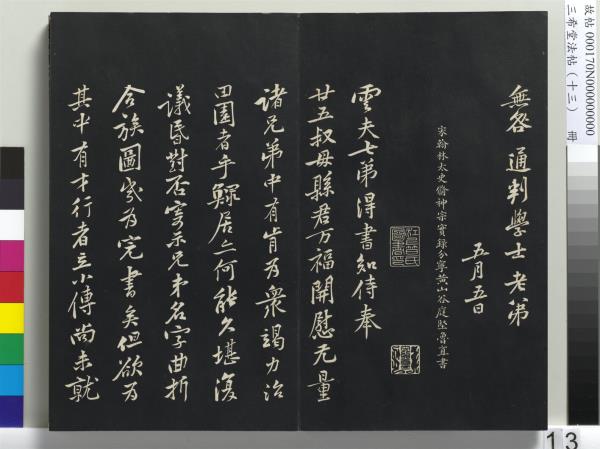 無咎通判學士老弟
五月五日
宋翰林太史脩神宗實錄分寧黃山谷庭堅魯直書
雲夫七弟得書知侍奉
廿五叔母縣君万福開慰无量
諸兄弟中有肯為衆竭力治
田園者乎鰥居亦何能久堪復
議昏對否寄示兄弟名字曲折
合族圖歲為完書矣但欲為
其中有才行者立小傳尚未就
故帖 000170N000000000
三希堂法帖（十三） 冊
13